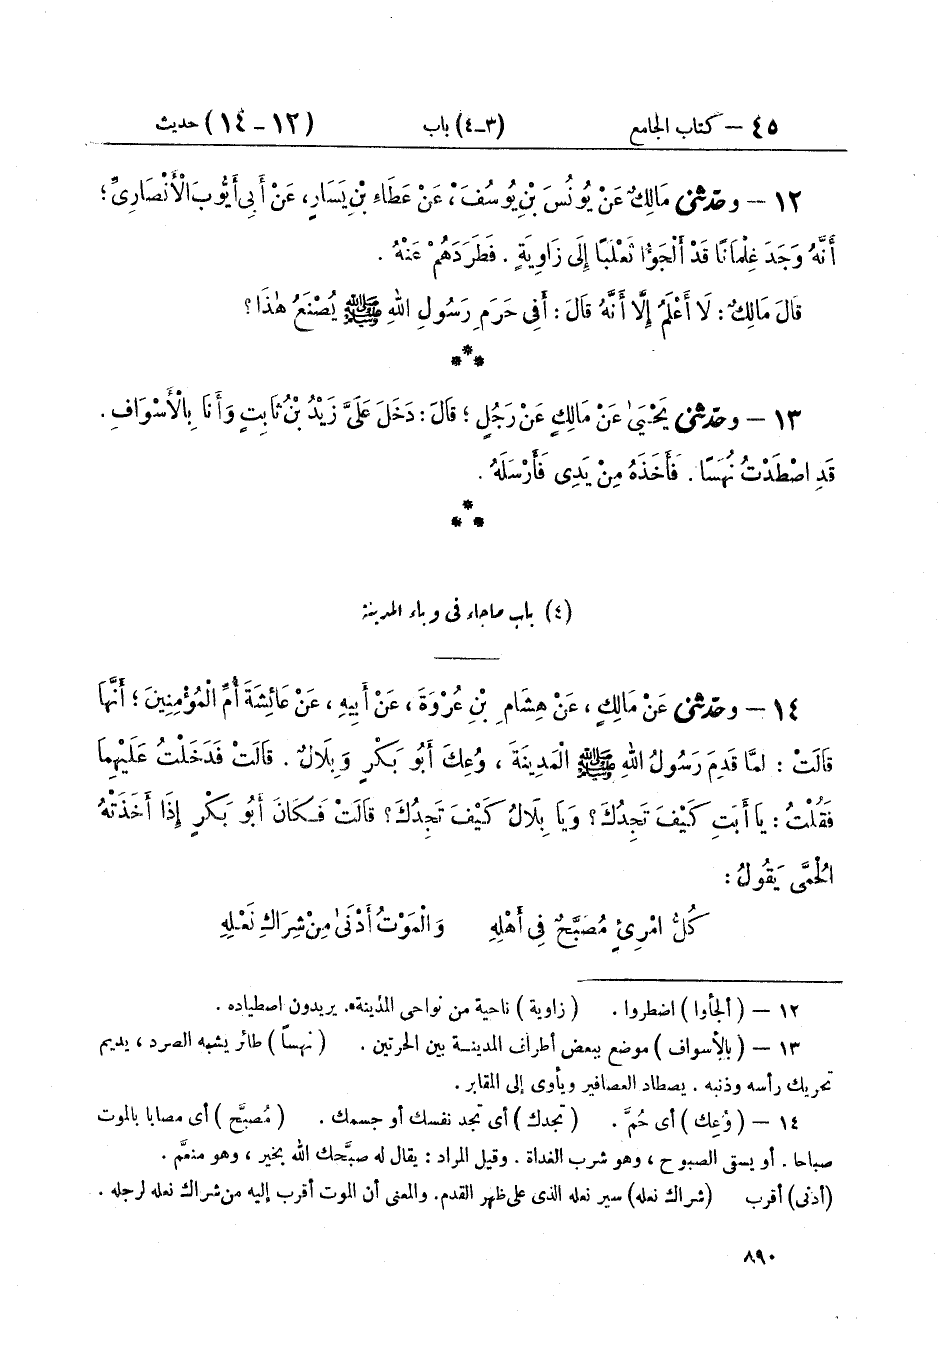 ٤٥ – كتاب الجامع (٣-٤) باب (١٢-١٤) حديث
١٢ – وحدثنى مَالِكٌ عَنْ يُونُسَ بْنِ يُوسُفَ، عَنْ عَطَاءِ بْنِ يَسَارٍ، عَنْ أَبِى أَيُّوبَ الْأَنْصَارِىِّ؛
أَنَّهُ وَجَدَ غِلْمَانًا قَدْ أَلْجَؤُا ثَعْلَبًا إِلَى زَاوِيَةٍ . فَطَرَدَهُمْ عَنْهُ .
قَالَ مَالِكٌ: لَا أَعْلَمُ إِلَّا أَنَّهُ قَالَ: أَفِى حَرَمِ رَسُولِ اللهِ ﷺ يُصْنَعُ هٰذَا؟
***
١٣ – وحدثنى يَحْيَىٰ عَنْ مَالِكٍ عَنْ رَجُلٍ؛ قَالَ: دَخَلَ عَلَىَّ زَيْدُ بْنُ ثَابِتٍ وَأَنَا بِالْأَسْوَافِ .
قَدِ اصْطَدْتُ نُهَسًا . فَأَخَذَهُ مِنْ يَدِى فَأَرْسَلَهُ .
***
(٤) باب ماجاء فى وباء المدينة
١٤ – وحدثنى عَنْ مَالِكٍ، عَنْ هِشَامِ بْنِ عُرْوَةَ، عَنْ أَبِيهِ، عَنْ عَائِشَةَ أُمِّ الْمُؤْمِنِينَ؛ أَنَّهَا
قَالَتْ: لَمَّا قَدِمَ رَسُولُ اللهِ ﷺ الْمَدِينَةَ، وُعِكَ أَبُو بَكْرٍ وَبِلَالٌ . قَالَتْ فَدَخَلْتُ عَلَيْهِمَا
فَقُلْتُ: يَا أَبَتِ كَيْفَ تَجِدُكَ؟ وَيَا بِلَالُ كَيْفَ تَجِدُكَ؟ قَالَتْ فَكَانَ أَبُو بَكْرٍ إِذَا أَخَذَتْهُ
الْحُمَّى يَقُولُ:
كُلُّ امْرِئٍ مُصَبَّحٌ فِى أَهْلِهِ وَالْمَوْتُ أَدْنَىٰ مِنْ شِرَاكِ نَعْلِهِ
١٢ – (ألجأوا) اضطروا . (زاوية) ناحية من نواحى المدينة. يريدون اصطياده .
١٣ – (بالأسواف) موضع ببعض أطراف المدينة بين الحرتين . (نهسًا) طائر يشبه الصرد، يديم
تحريك رأسه وذنبه . يصطاد العصافير ويأوى إلى المقابر .
١٤ – (وُعِك) أى حُمَّ . (تجدك) أى تجد نفسك أو جسمك . (مُصبَّح) أى مصابا بالموت
صباحا . أو يسقى الصبوح، وهو شرب الغداة . وقيل المراد: يقال له صبَّحك الله بخير، وهو منعَّم .
(أدنى) أقرب (شراك نعله) سير نعله الذى على ظهر القدم. والمعنى أن الموت أقرب إليه من شراك نعله لرجله .
٨٩٠